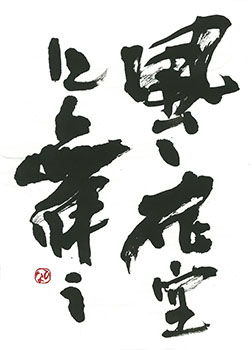 風花空
に舞う